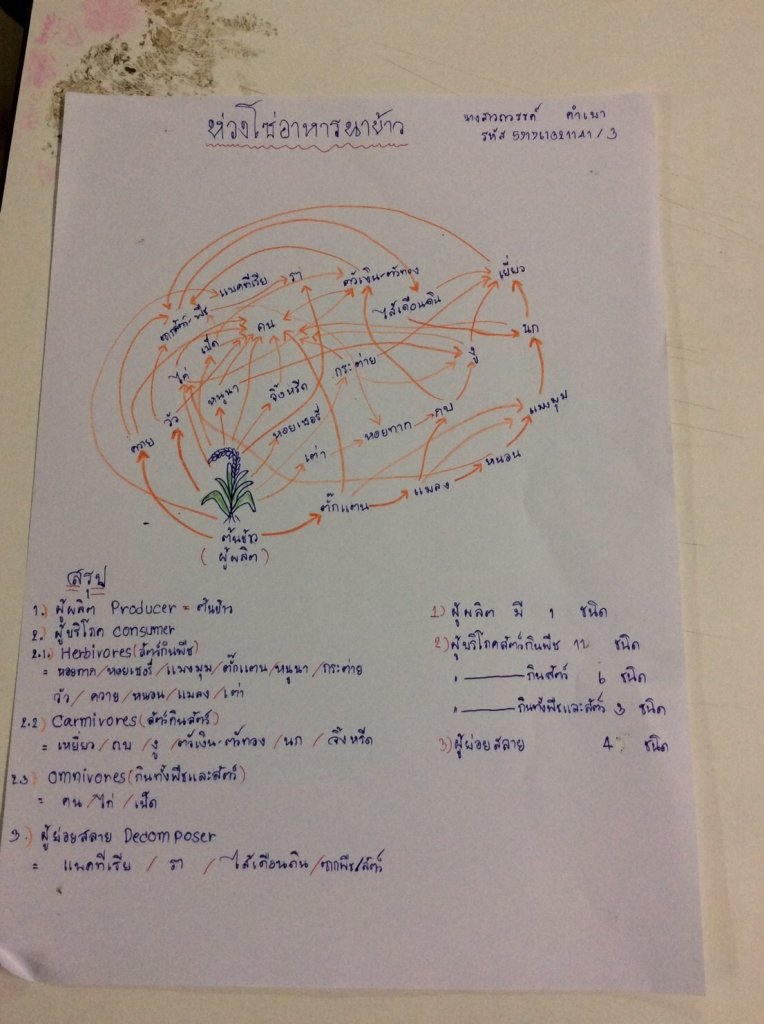 ห่วงโซ่อาหารนาข้าว
คำเนา
รหัส
เหยี่ยว
แบคทีเรีย
รา
ตัวเงิน-ตัวทอง
ไส้เดือนดิน
ซากสัตว์-พืช
เป็ด
คน
นก
ไก่
หนูนา
จิ้งหรีด
กระต่าย
งู
ควาย
วัว
หอยเชอรี่
หอยทาก
กบ
แมงมุม
เต่า
หนอน
ตั๊กแตน
แมลง
ต้นข้าว
(ผู้ผลิต)
สรุป
1.) ผู้ผลิต Producer = ต้นข้าว
2.) ผู้บริโภค consumer
2.1.) Herbivores (สัตว์กินพืช)
= หอยทาก/หอยเชอรี่/แมงมุม/ตั๊กแตน/หนูนา/กระต่าย
วัว/ควาย/หนอน/แมลง/เต่า
2.2) Carmivores (สัตว์กินสัตว์)
= เหยี่ยว/กบ/งู/ตัวเงิน-ตัวทอง/นก/จิ้งหรีด
2.3) omnivores (กินทั้งพืชและสัตว์)
= คน/ไก่/เป็ด
3.) ผู้ย่อยสลาย Decomposer
= แบคทีเรีย / รา / ไส้เดือนดิน/ซากพืช/สัตว์
1) ผู้ผลิต มี 1 ชนิด
2) ผู้บริโภคสัตว์กินพืช 11 ชนิด
" กินสัตว์ 6 ชนิด
" กินทั้งพืชและสัตว์ 3 ชนิด
3) ผู้ย่อยสลาย 4 ชนิด